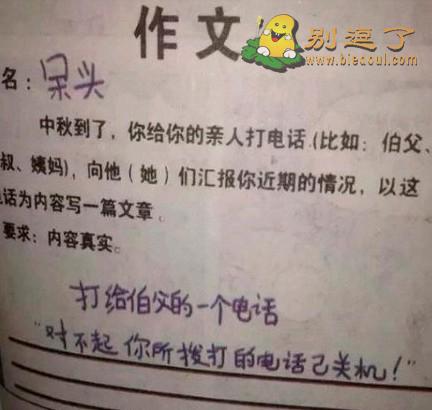 作文
别逗了
www.biedoul.com
名：呆头
中秋到了，你给你的亲人打电话（比如：伯父、
叔、姨妈），向他（她）们汇报你近期的情况，以这
电话为内容写一篇文章。
要求：内容真实。
打给伯父的一个电话
“对不起你所拨打的电话已关机！”